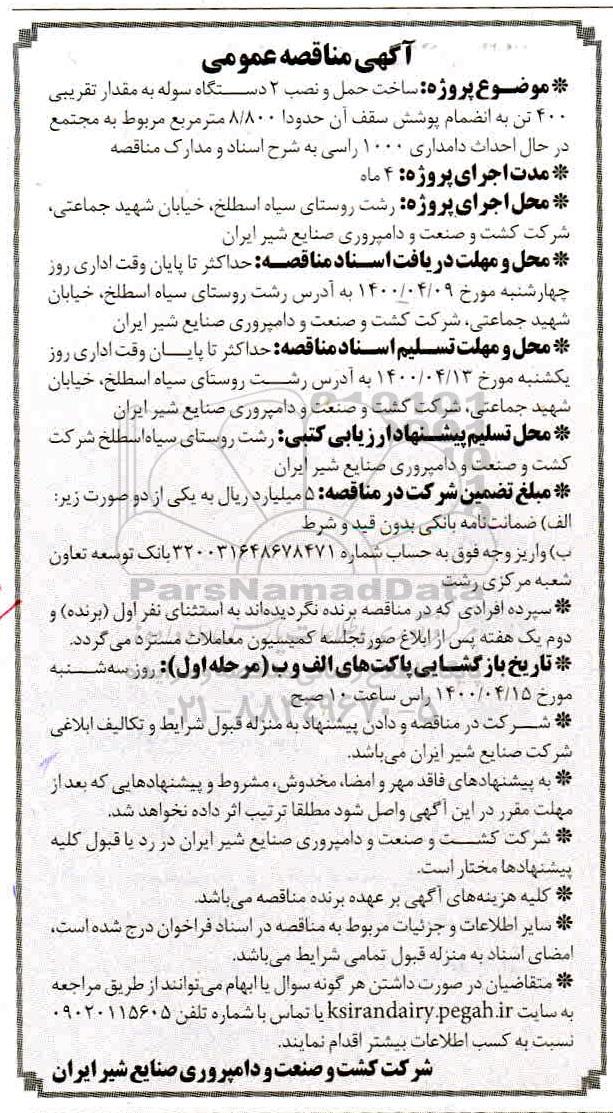 آگهی مناقصه عمومی
❊ موضوع پروژه: ساخت حمل و نصب ۲ دستگاه سوله به مقدار تقریبی
۴۰۰ تن به انضمام پوشش سقف آن حدودا ۸/۸۰۰ مترمربع مربوط به مجتمع
در حال احداث دامداری ۱۰۰۰ راسی به شرح اسناد و مدارک مناقصه
❊ مدت اجرای پروژه: ۴ ماه
❊ محل اجرای پروژه: رشت روستای سیاه اسطلخ، خیابان شهید جماعتی،
شرکت کشت و صنعت و دامپروری صنایع شیر ایران
❊ محل و مهلت دریافت اسناد مناقصه: حداکثر تا پایان وقت اداری روز
چهارشنبه مورخ ۱۴۰۰/۰۴/۰۹ به آدرس رشت روستای سیاه اسطلخ، خیابان
شهید جماعتی، شرکت کشت و صنعت و دامپروری صنایع شیر ایران
❊ محل و مهلت تسلیم اسناد مناقصه: حداکثر تا پایان وقت اداری روز
یکشنبه مورخ ۱۴۰۰/۰۴/۱۳ به آدرس رشت روستای سیاه اسطلخ، خیابان
شهید جماعتی، شرکت کشت و صنعت و دامپروری صنایع شیر ایران
❊ محل تسلیم پیشنهاد ارزیابی کتبی: رشت روستای سیاه اسطلخ شرکت
کشت و صنعت و دامپروری صنایع شیر ایران
❊ مبلغ تضمین شرکت در مناقصه: ۵ میلیارد ریال به یکی از دو صورت زیر:
الف) ضمانت‌نامه بانکی بدون قید و شرط
ب) واریز وجه فوق به حساب شماره ۳۲۰۰۳۱۶۴۸۶۷۸۴۷۱ بانک توسعه تعاون
شعبه مرکزی رشت
ParsNamadData
❊ سپرده افرادی که در مناقصه برنده نگردیده‌اند به استثنای نفر اول (برنده) و
دوم یک هفته پس از ابلاغ صورتجلسه کمیسیون معاملات مسترد می‌گردد.
❊ تاریخ بازگشایی پاکت‌های الف و ب (مرحله اول): روز سه‌شنبه
مورخ ۱۴۰۰/۰۴/۱۵ راس ساعت ۱۰ صبح
۰۲۱-۸۸۳۴۹۶۷۰-۵
❊ شرکت در مناقصه و دادن پیشنهاد به منزله قبول شرایط و تکالیف ابلاغی
شرکت صنایع شیر ایران می‌باشد.
❊ به پیشنهادهای فاقد مهر و امضا، مخدوش، مشروط و پیشنهادهایی که بعد از
مهلت مقرر در این آگهی واصل شود مطلقا ترتیب اثر داده نخواهد شد.
❊ شرکت کشت و صنعت و دامپروری صنایع شیر ایران در رد یا قبول کلیه
پیشنهادها مختار است.
❊ کلیه هزینه‌های آگهی بر عهده برنده مناقصه می‌باشد.
❊ سایر اطلاعات و جزئیات مربوط به مناقصه در اسناد فراخوان درج شده است،
امضای اسناد به منزله قبول تمامی شرایط می‌باشد.
❊ متقاضیان در صورت داشتن هر گونه سوال یا ابهام می‌توانند از طریق مراجعه
به سایت ksirandairy.pegah.ir یا تماس با شماره تلفن ۰۹۰۲۰۱۱۵۶۰۵
نسبت به کسب اطلاعات بیشتر اقدام نمایند.
شرکت کشت و صنعت و دامپروری صنایع شیر ایران